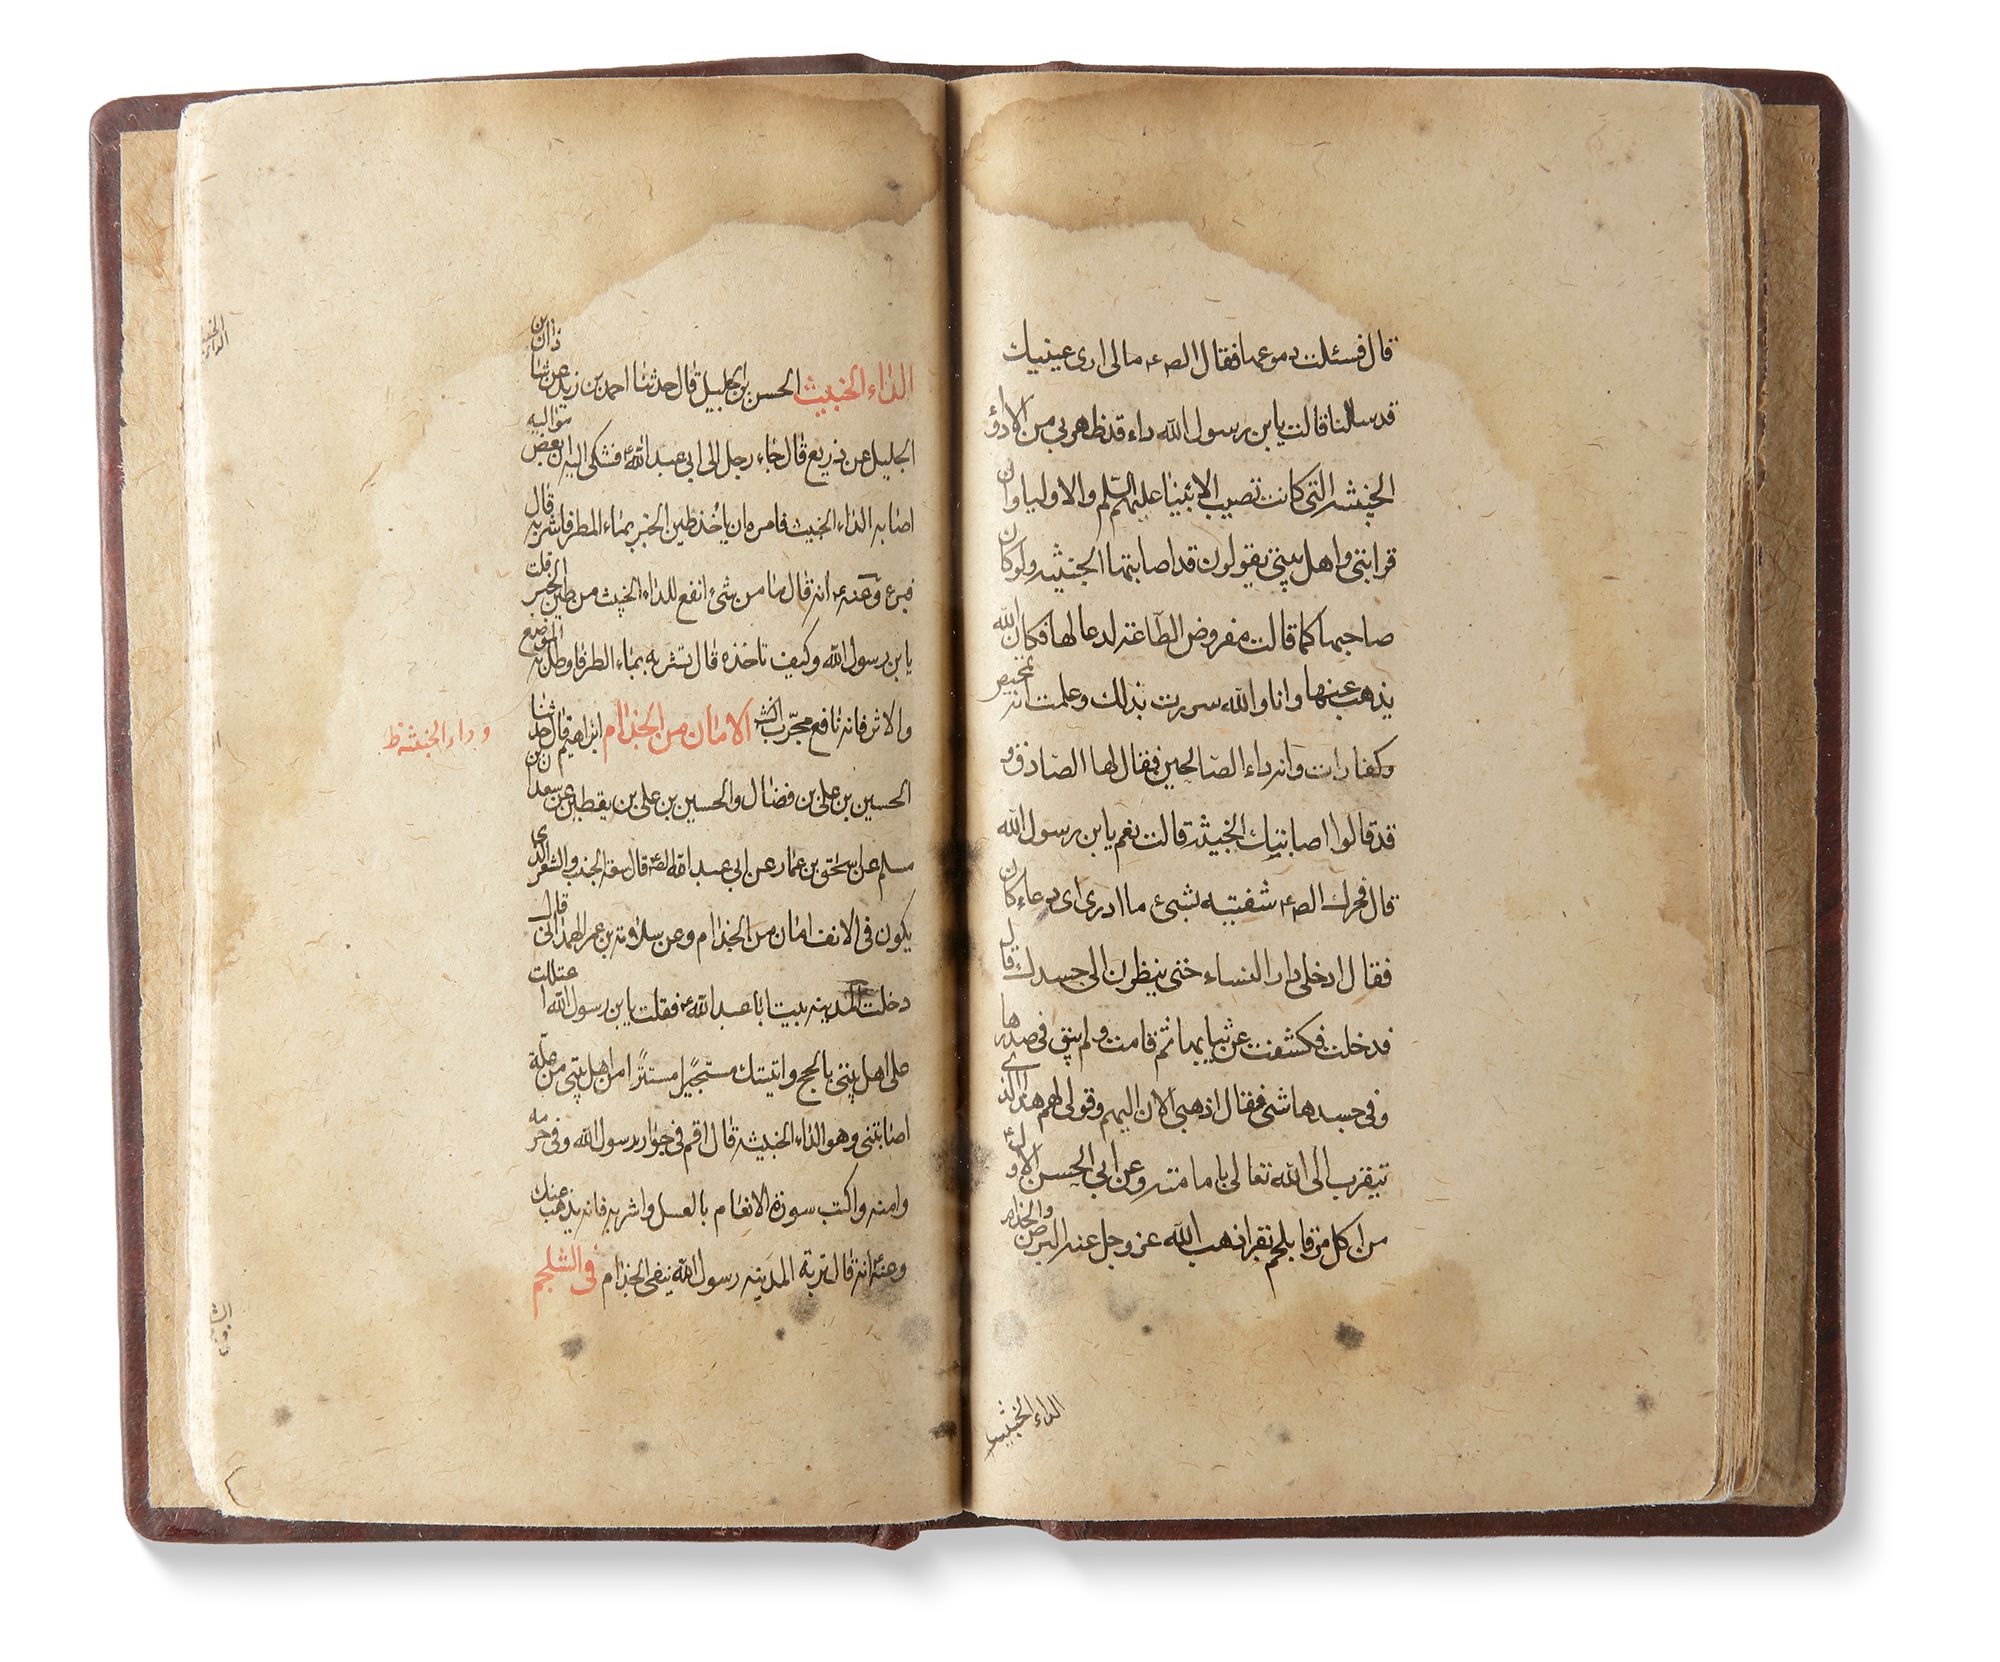 قال فسئلت دموعها فقال الصه ما لى ارى عينيك
قد سالتا قالت يابن رسول الله داء قد ظهر بي من الادوٓء
الخبيثه التى كانت تصيب الانبيٓا عليهم السّلم والاوليا وان
قرابتى واهل بيتى يقولون قد اصابتها الخبيثه ولو كان
صاحبها كما قالت مفروض الطّاعة لدعا لها فكان الله
يذهب عنها وانا والله سررت بذلك وعلمت انه تمحيص
وكفارات وانه داء الصّالحين فقال لها الصّادق و
قد قالوا اصابتيك الخبيثه قالت نعم يابن رسول الله
قال فحرك الصه شفتيه بشىء ما ادرى اى دعاء كان
فقال ادخلى دار النساء حتى ينظرن الى جسدك قال
فدخلت فكشفت عن ثيابها ثم قامت ولم يبق فى صدرها
وفى جسدها شى فقال اذهبى الان اليهم وقولى لهم هذا الذى
يتقرب الى الله تعالى بامامته وعن ابى الحسن الاول
من اكل مرقا بلحم بقر اذهب الله عز وجل عنه البرص والجذام
الداء الخبيثه
الدٓاء الخبيث الحسن بن الجليل قال حدثنا احمد بن زيد عن شاذان بن
الجليل عن ذريع قال جاء رجل الى ابى عبد الله فشكى اليه ان بعض مواليه
اصابه الداء الخبيث فامره ان ياخذ طين الحير بماء المطر فاشربه قال
فبرء وعنه انه قال ما من شىء انفع للداء الخبيث من طين الحير قلت
يابن رسول الله وكيف تاخذه قال تشربه بماء المطر وطل به الموضع
والاثر فانه نافع مجرّب انش الامان من الجذام ابراهيم قال حدثنا
وداء الخبيثه ظ
الحسين بن على بن فضال والحسين بن على بن يقطين عن سعدان بن
مسلم عن اسحق بن عمار عن ابى عبد الله الصه قال والشعر الذى
يكون فى الانف امان من الجذام وعن سلامة بن عمر الهمدانى قال
دخلت المدينه بيت ابا عبد الله فقلت يابن رسول الله اعتللت
على اهل بيتى بالحج واتيتك مستجيرا مستترا من اهل بيتى من علّة
اصابتنى وهو الداء الخبيثه قال اقم فى جوار رسول الله وفى حرمه
وامنه واكتب سورة الانعام بالعسل واشربه فانه يذهب عنك
وعنه انه قال تربة المدينه رسول الله ينفى الجذام فى الشلجم